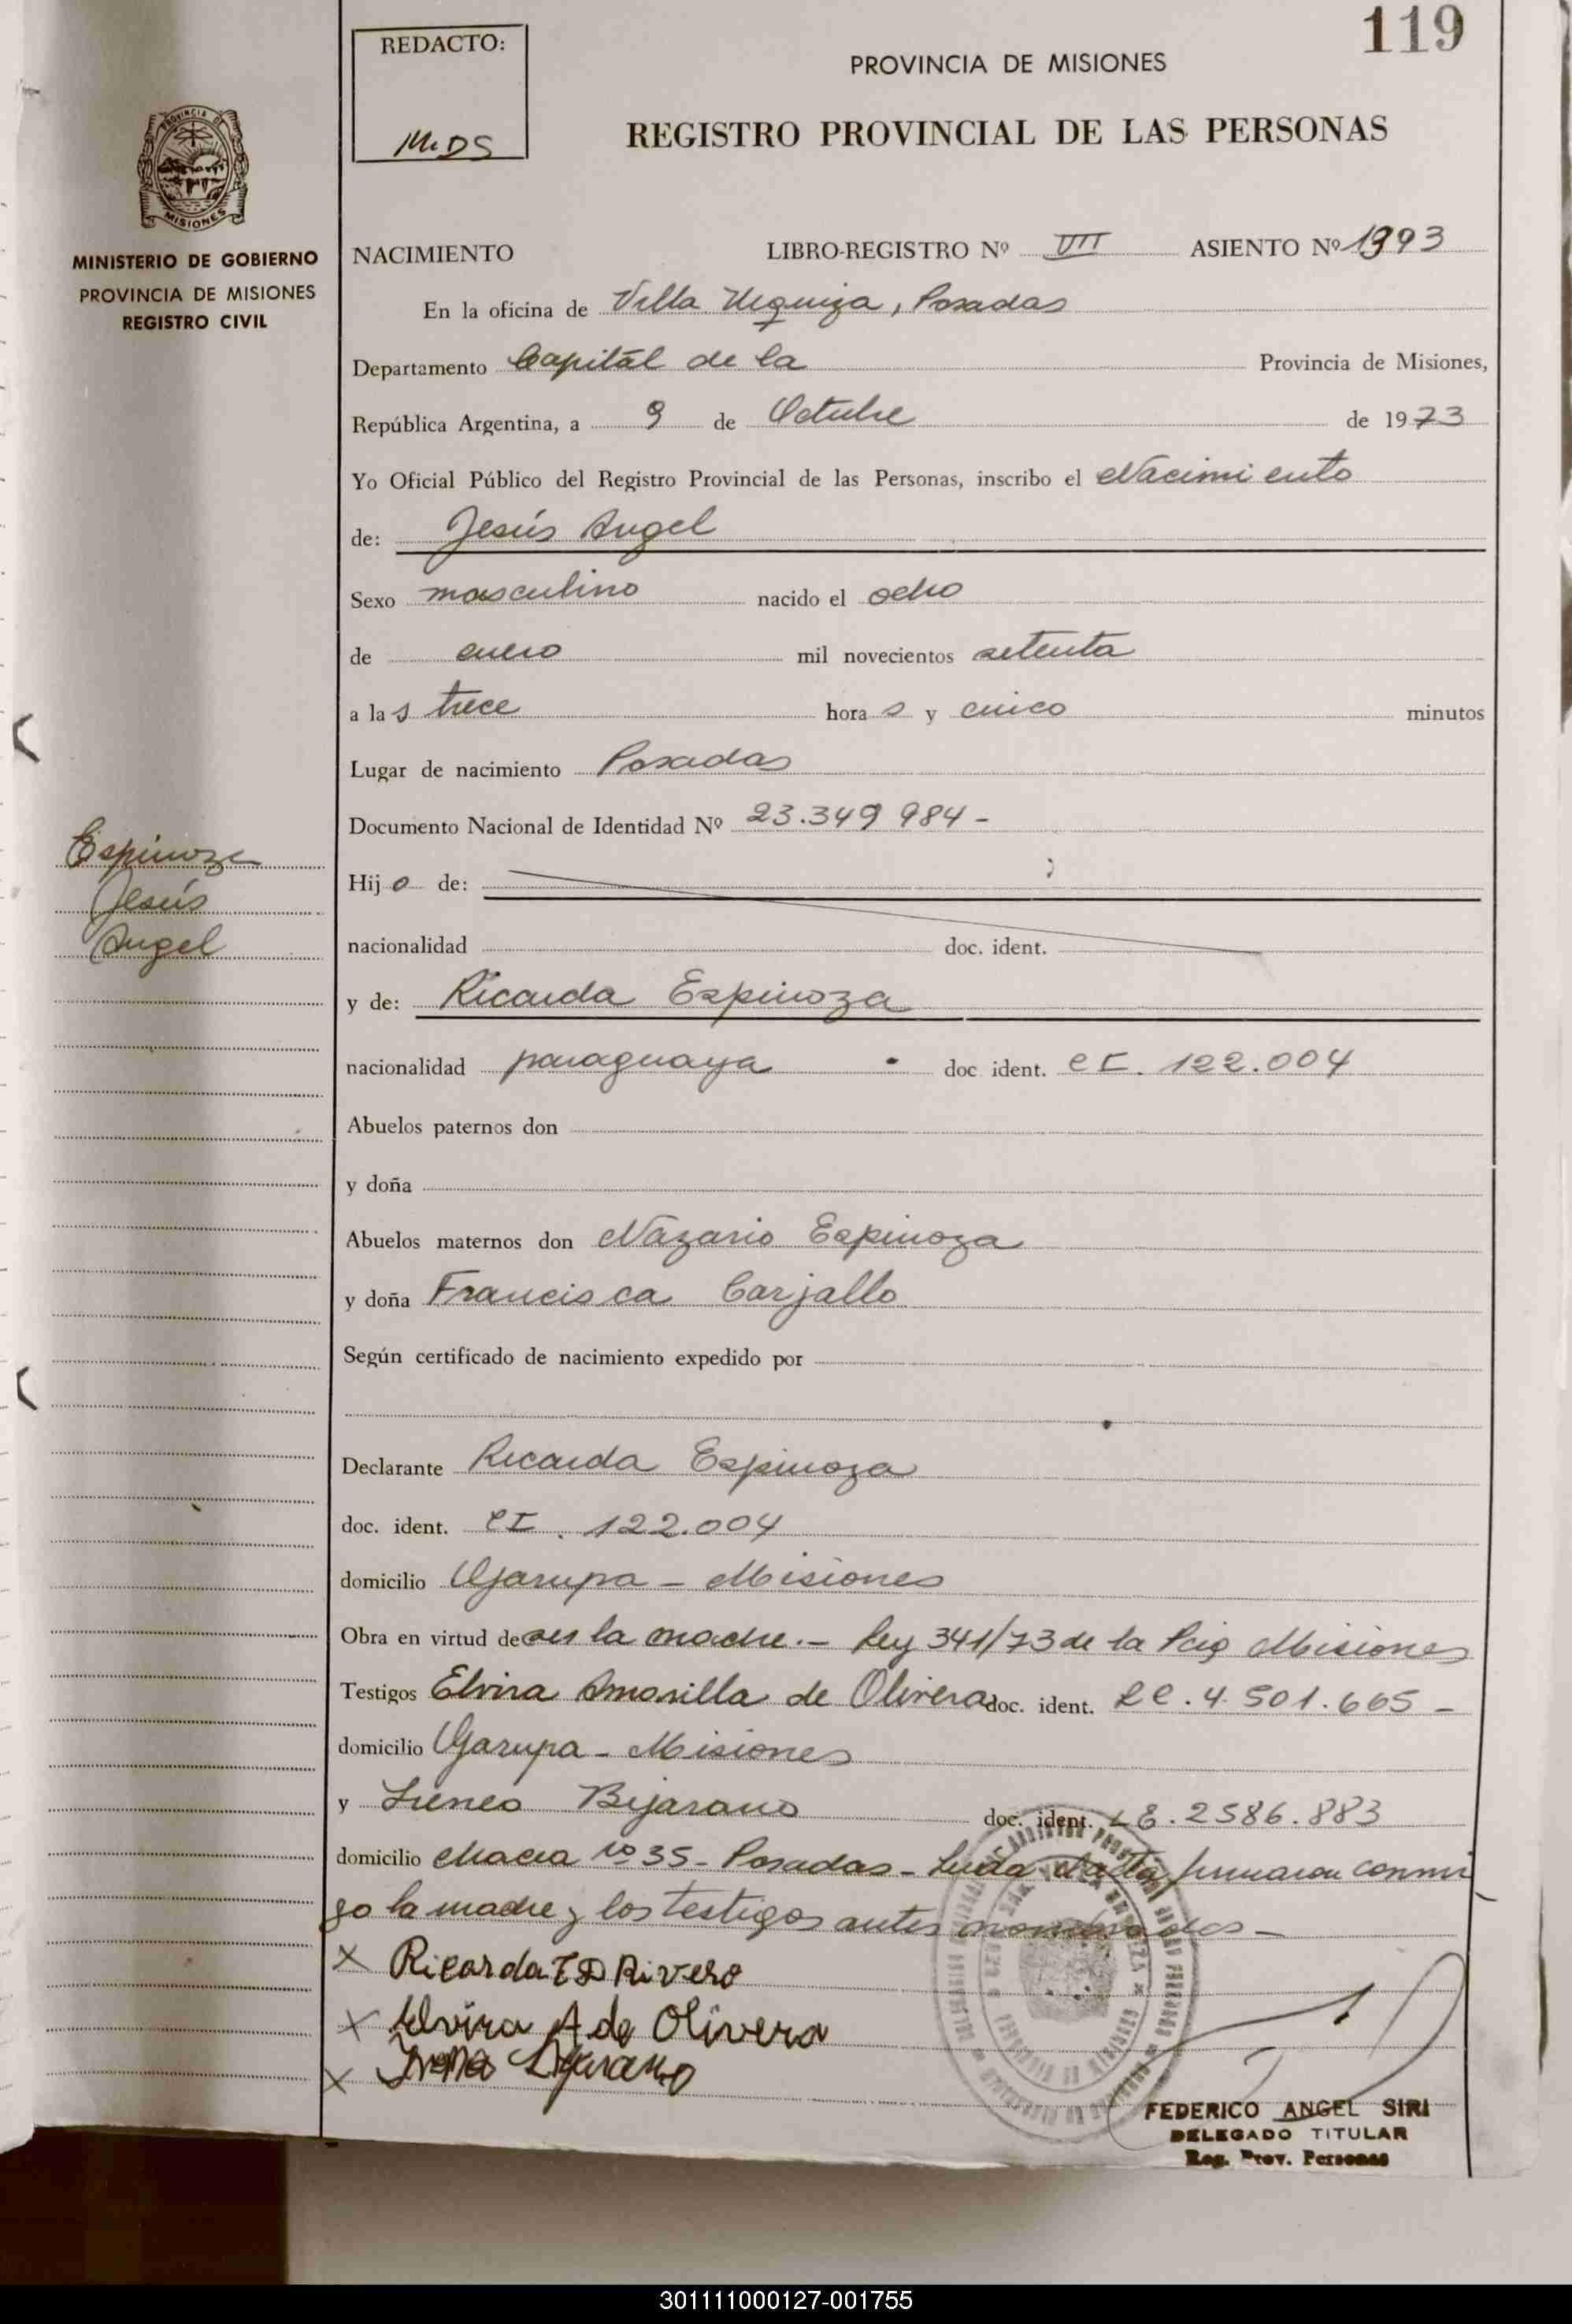 119
REDACTO:
M.DS
PROVINCIA DE MISIONES
REGISTRO PROVINCIAL DE LAS PERSONAS
PROVINCIA DE
MISIONES
MINISTERIO DE GOBIERNO
PROVINCIA DE MISIONES
REGISTRO CIVIL
NACIMIENTO LIBRO-REGISTRO Nº VII ASIENTO Nº 1993
En la oficina de Villa Urquiza, Posadas
Departamento Capital de la Provincia de Misiones,
República Argentina, a 9 de Octubre de 1973
Yo Oficial Público del Registro Provincial de las Personas, inscribo el Nacimiento
de: Jesús Angel
Sexo masculino nacido el ocho
de enero mil novecientos setenta
a las trece horas y cinco minutos
Lugar de nacimiento Posadas
Documento Nacional de Identidad Nº 23.349 984-
Espinoza
Jesús
Angel
Hijo de:
nacionalidad doc. ident.
y de: Ricarda Espinoza
nacionalidad paraguaya doc ident. CI. 122.004
Abuelos paternos don
y doña
Abuelos maternos don Nazario Espinoza
y doña Francisca Carjallo
Según certificado de nacimiento expedido por
Declarante Ricarda Espinoza
doc. ident. CI. 122.004
domicilio Garupa - Misiones
Obra en virtud de ser la madre.- Ley 341/73 de la Pcia Misiones
Testigos Elvira Amarilla de Olivera doc. ident. LC. 4.501.665-
domicilio Garupa - Misiones
y Ireneo Bejarano doc. ident. LE. 2586.883
domicilio Chacra Nº 35- Posadas- Leida el acta firmaron conmi
go la madre y los testigos antes nombrados-
x Ricarda E D Rivero
x Elvira A de Olivera
x
FEDERICO ANGEL SIRI
DELEGADO TITULAR
Reg. Prov. Personas
301111000127-001755